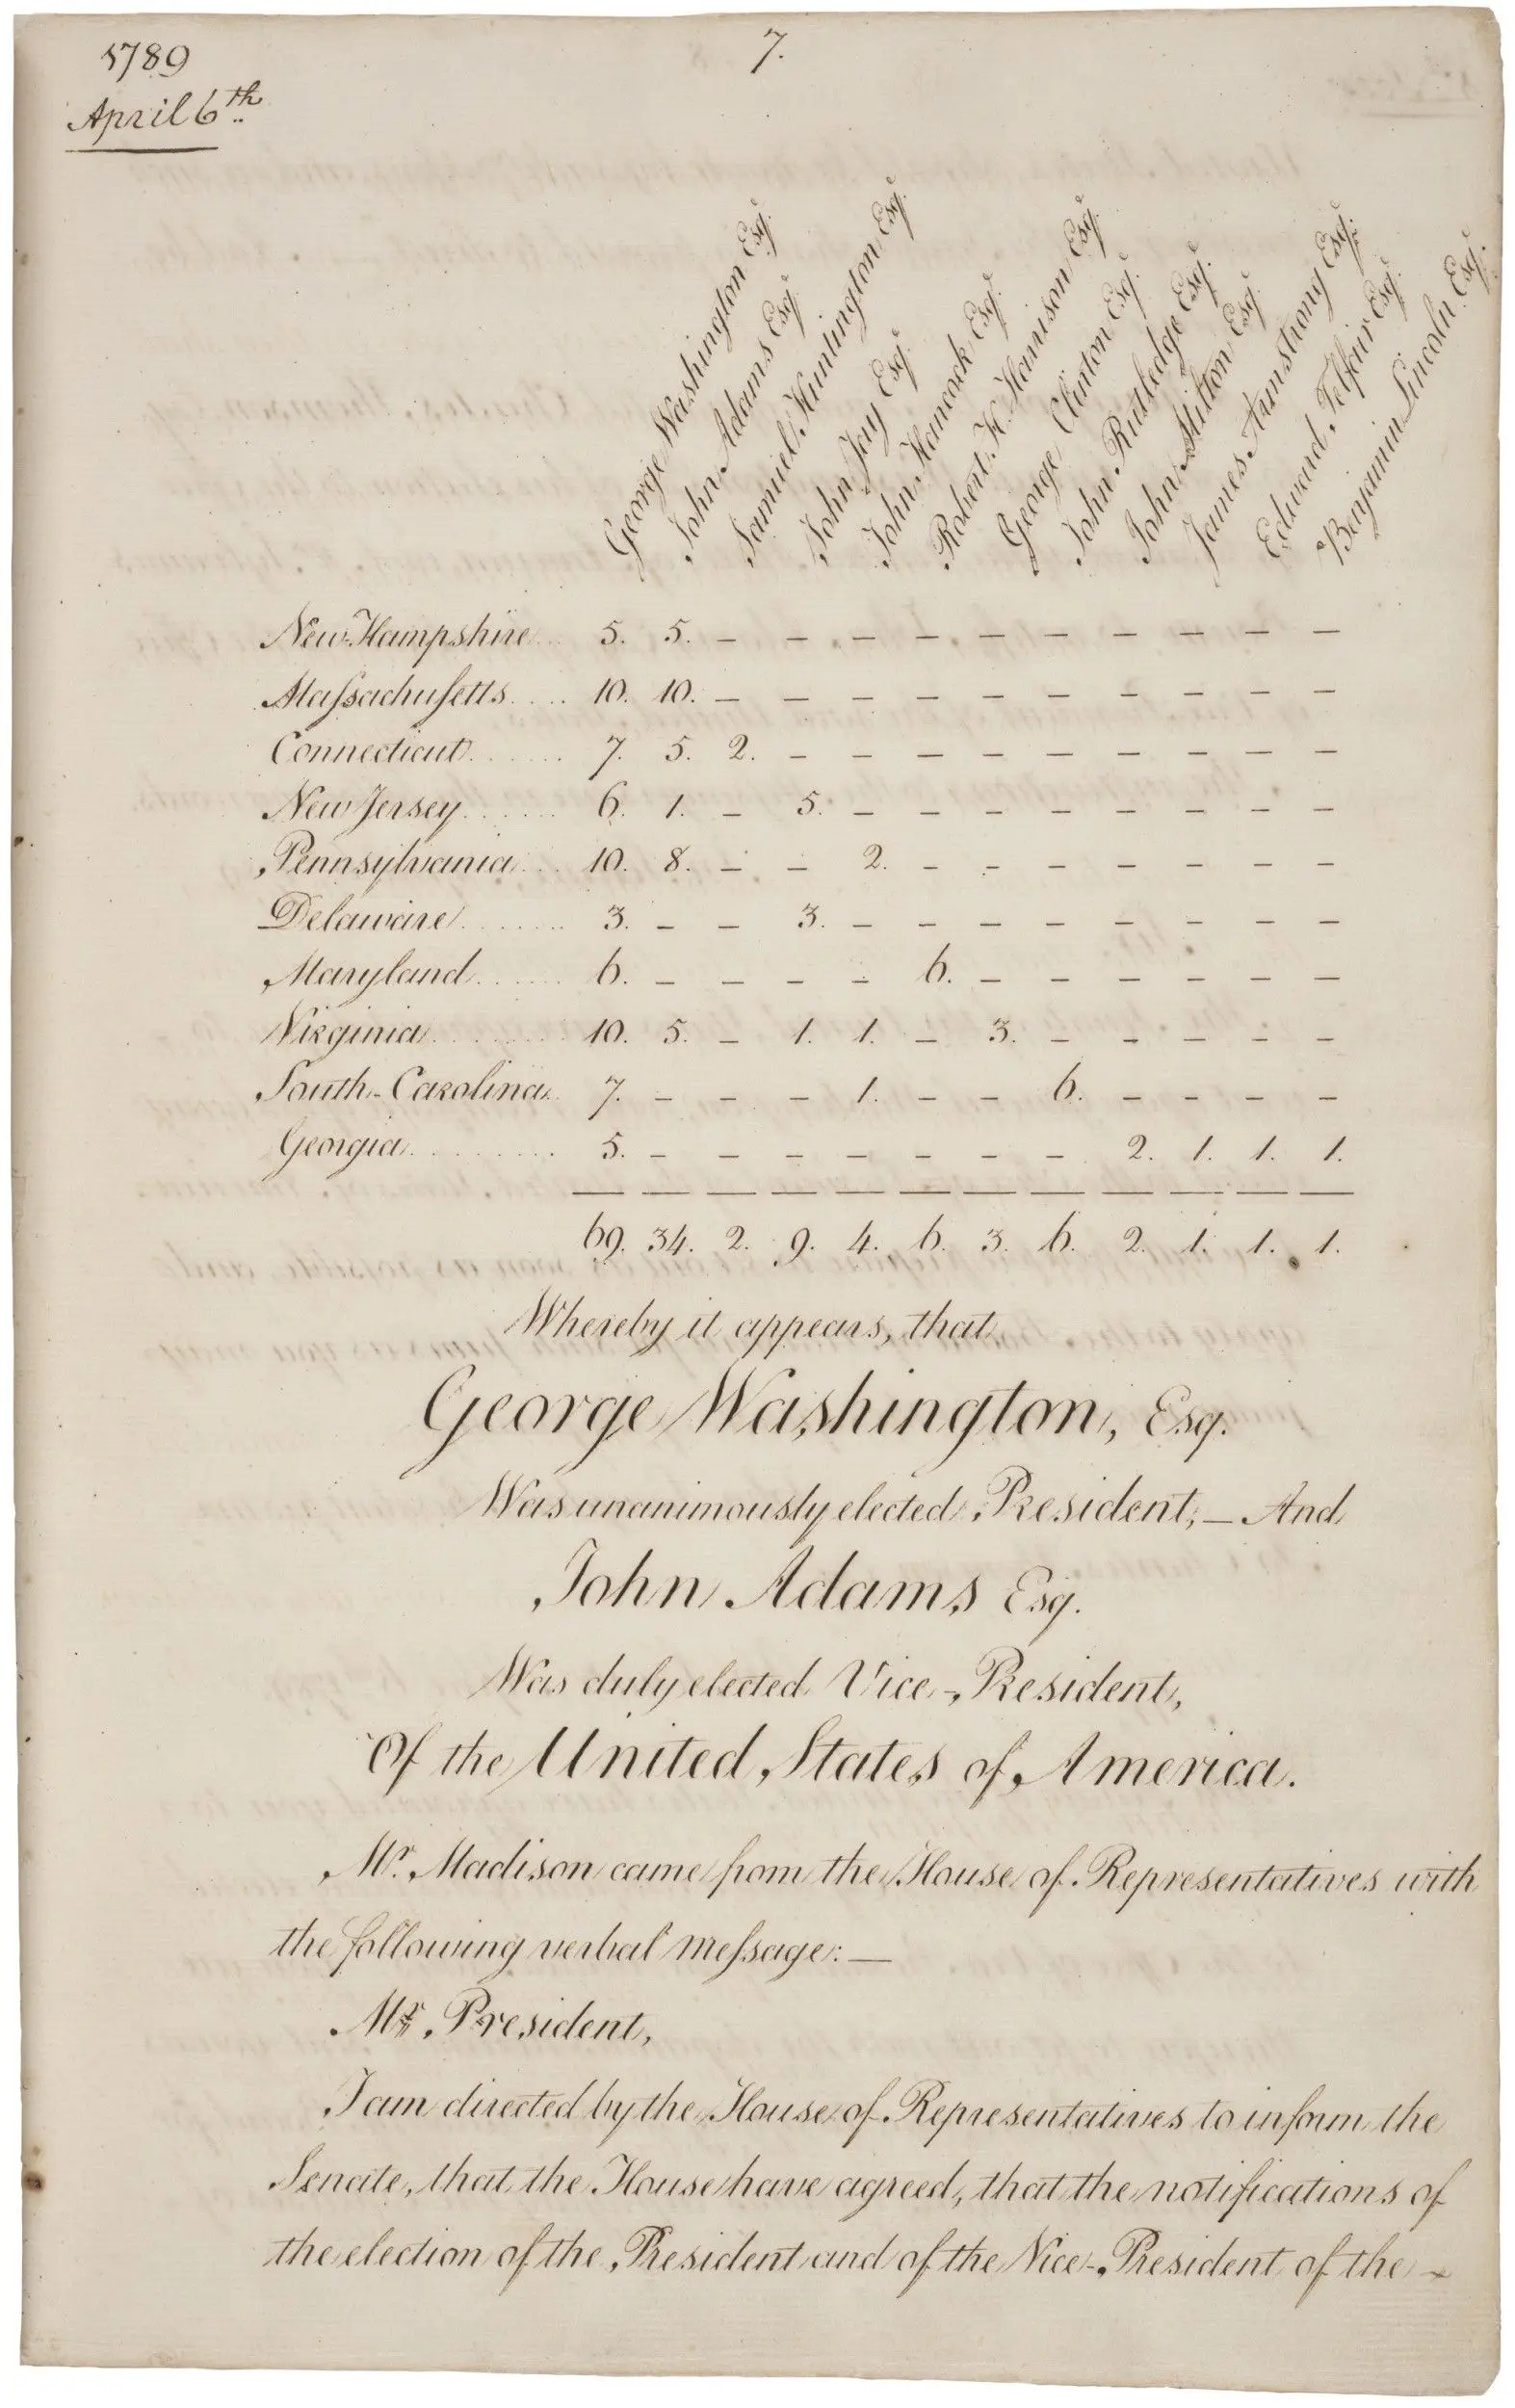 1789
7.
April 6th
George Washington Esqr.
John Adams Esqr.
Samuel Huntington Esqr.
John Jay Esqr.
John Hancock Esqr.
Robert H. Harrison Esqr.
George Clinton Esqr.
John Rutledge Esqr.
John Milton Esqr.
James Armstrong Esqr.
Edward Telfair Esqr.
Benjamin Lincoln Esqr.
New Hampshire... 5. 5. – – – – – – – – – –
Massachusetts.... 10. 10. – – – – – – – – – –
Connecticut....... 7. 5. 2. – – – – – – – – –
New Jersey....... 6. 1. – 5. – – – – – – – –
Pennsylvania... 10. 8. – – 2. – – – – – – –
Delaware........ 3. – – 3. – – – – – – – –
Maryland...... 6. – – – – 6. – – – – – –
Virginia........ 10. 5. – 1. 1. – 3. – – – – –
South-Carolina.. 7. – – – 1. – – 6. – – – –
Georgia.......... 5. – – – – – – – 2. 1. 1. 1.
69. 34. 2. 9. 4. 6. 3. 6. 2. 1. 1. 1.
Whereby it appears, that
George Washington, Esq.
Was unanimously elected President,– And
John Adams Esq.
Was duly elected Vice-President,
Of the United States of America.
Mr. Madison came from the House of Representatives with
the following verbal message:—
Mr. President,
I am directed by the House of Representatives to inform the
Senate, that the House have agreed, that the notifications of
the election of the President and of the Vice-President of the –